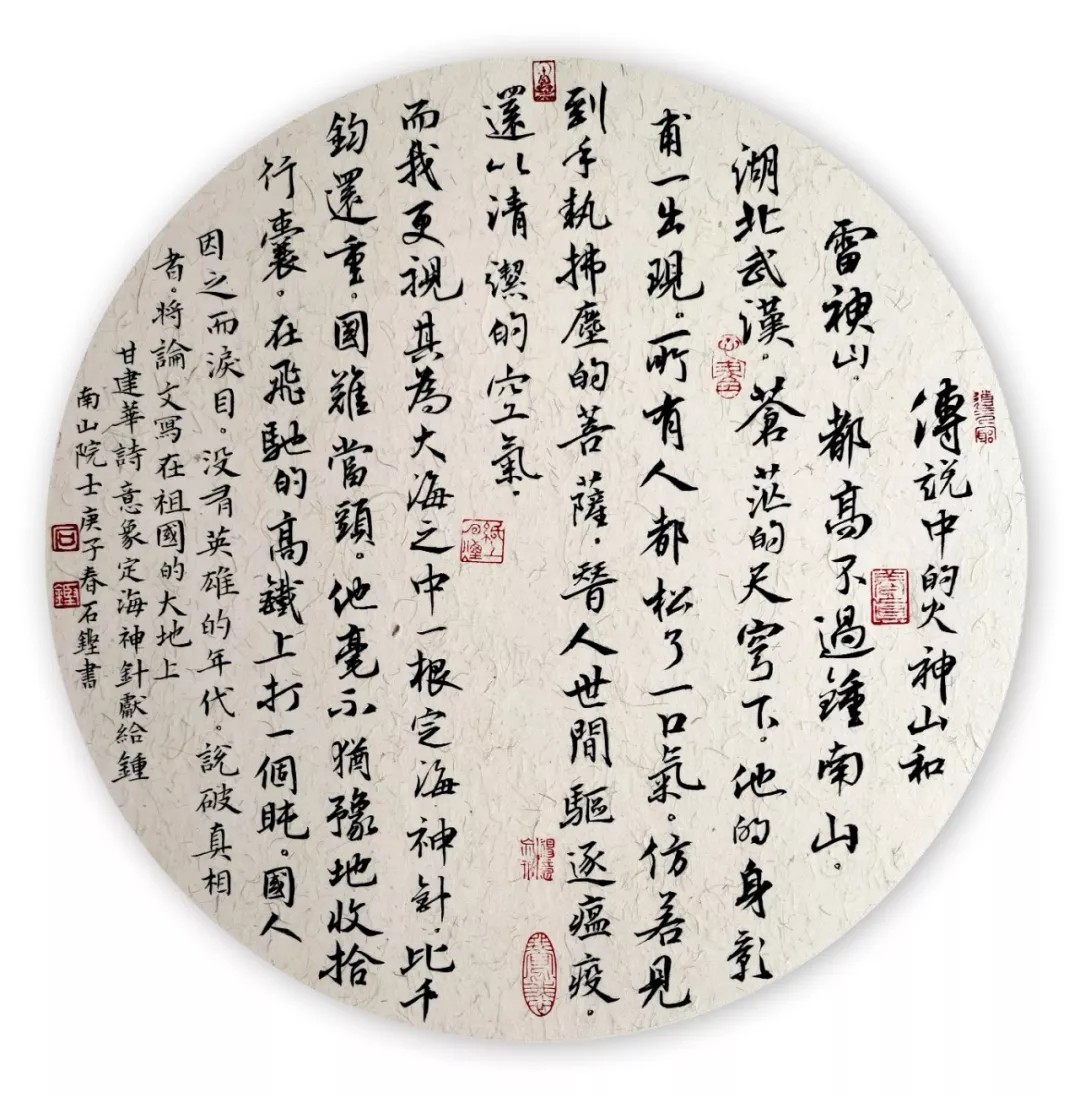 傳說中的火神山和
雷神山。都高不過鍾南山。
湖北武漢。蒼茫的天穹下。他的身影
甫一出現。所有人都松了一口氣。仿若見
到手執拂塵的菩薩。替人世間驅逐瘟疫。
還以清潔的空氣。
而我更視其為大海之中一根定海神針。比千
鈞還重。國難當頭。他毫不猶豫地收拾
行囊。在飛馳的高鐵上打一個盹。國人
因之而淚目。没有英雄的年代。說破真相
者。將論文寫在祖國的大地上
甘建華詩意象定海神針獻給鍾
南山院士庚子春石鏗書
石